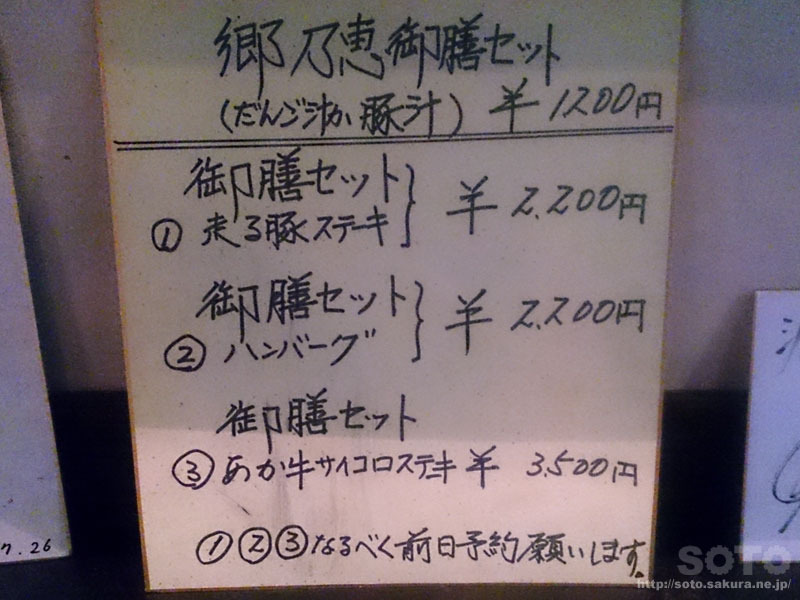 郷乃恵御膳セット
(だんご汁か豚汁) ¥ 1200円
御膳セット
① 走る豚ステーキ } ¥ 2,200円
御膳セット
② ハンバーグ } ¥ 2,200円
御膳セット
③ あか牛サイコロステーキ ¥ 3,500円
①②③なるべく前日予約願います。
7.26
SOTO
http://soto.sakura.ne.jp/